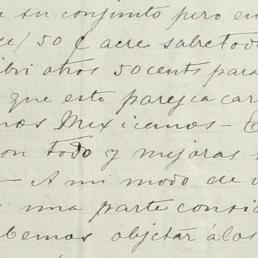 su conjunto pero en
/50 ℓ acre sabre todo
otros 50 cents para
que esto paresca car
Mexicanos —
on todo y mejoras
— A mi modo de
una parte consid
bemos objetar á los